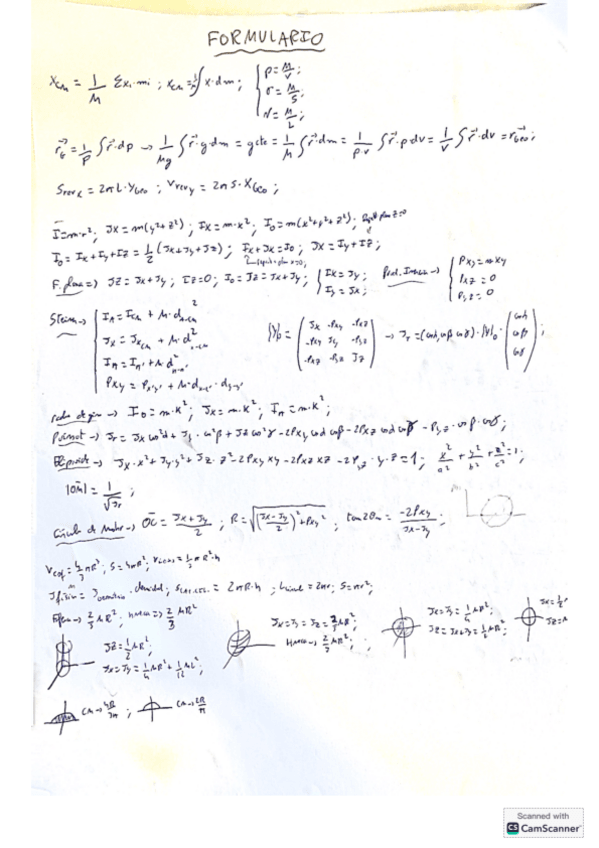 FORMULARIO
X_CM = 1/M Σxi·mi ; X_CM = 1/M ∫x·dm ; { ρ = M/V ; σ = M/S ; λ = M/L ;
r_G = 1/P ∫r·dp → 1/Mg ∫r·g dm = g cte = 1/M ∫r·dm = 1/ρ·V ∫r·ρ dv = 1/V ∫r·dv = r_GEO ;
S rev x = 2πL·Y_GEO ; V rev y = 2πS·X_GEO ;
I = m·r² ; Jx = m(y²+z²) ; Ix = m·x² ; Io = m(x²+y²+z²) ;
Io = Ix + Iy + Iz = 1/2 (Jx + Jy + Jz) ; Ix + Jx = Io ; Jx = Iy + Iz ;
F. plana => Jz = Jx + Jy ; Iz = 0 ; Io = Jz = Jx + Jy ; { Ix = Jy ; Iy = Jx ; Prod. Inercia → { Pxy = m·xy Pxz = 0 Pyz = 0
Steiner → { I_n = I_CM + M·d² Jx = Jx_CM + M·d² I_n = I_n' + M·d² Pxy = Px'y' + M·d·d
( Jx -Pxy -Pxz -Pxy Jy -Pyz -Pxz -Pyz Jz ) → Jr = (cosα, cosβ, cosγ) · ( cosα cosβ cosγ ) ;
radio de giro → Io = m·K² ; Jx = m·K² ; I_n = m·K² ;
Poinsot → Jr = Jx cos²α + Jy·cos²β + Jz cos²γ - 2Pxy cosα cosβ - 2Pxz cosα cosγ - Pyz·cosβ·cosγ ;
Elipsoide → Jx·x² + Jy·y² + Jz·z² - 2Pxy xy - 2Pxz xz - 2Pyz·y·z = 1 ; x²/a² + y²/b² + z²/c² = 1 ;
|OM| = 1/√Jr ;
Círculo de Mohr → OC = Jx+Jy/2 ; R = √((Jx-Jy/2)² + Pxy²) ; tan2θm = -2Pxy/Jx-Jy ;
V esf = 4/3 πR³ ; S = 4πR² ; V cono = 1/3 πR²·h
2πR·h ; L circ = 2πr ; S = πr² ;
Esfera → 2/5 MR² ; Hueca => 2/3 MR²
Jz = 1/2 MR² ;
Jx = Jy = 1/4 MR² + 1/12 ML² ;
Jx = Jy = Jz = 2/5 MR² ;
Hueca → 2/3 MR² ;
Jx = Jy = 1/4 MR² ;
Jz = Jx + Jy = 1/2 MR² ;
CM → 4R/3π ; CM → 2R/π
Scanned with
CS CamScanner